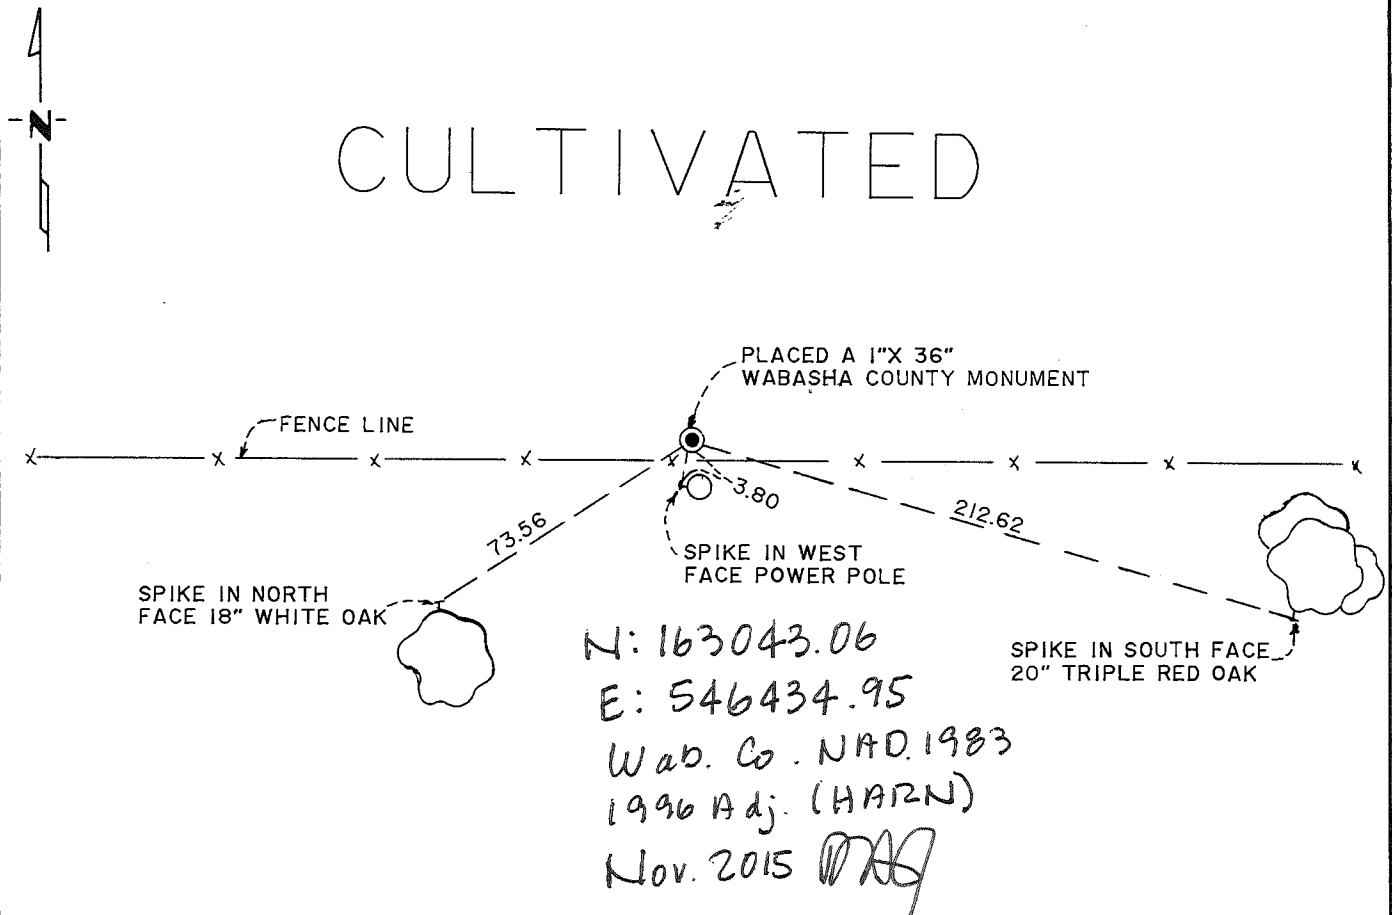 N
CULTIVATED
PLACED A 1"X 36"
WABASHA COUNTY MONUMENT
FENCE LINE
3.80
212.62
73.56
SPIKE IN WEST
FACE POWER POLE
SPIKE IN NORTH
FACE 18" WHITE OAK
SPIKE IN SOUTH FACE
20" TRIPLE RED OAK
N: 163043.06
E: 546434.95
Wab. Co. NAD 1983
1996 Adj. (HARN)
Nov. 2015